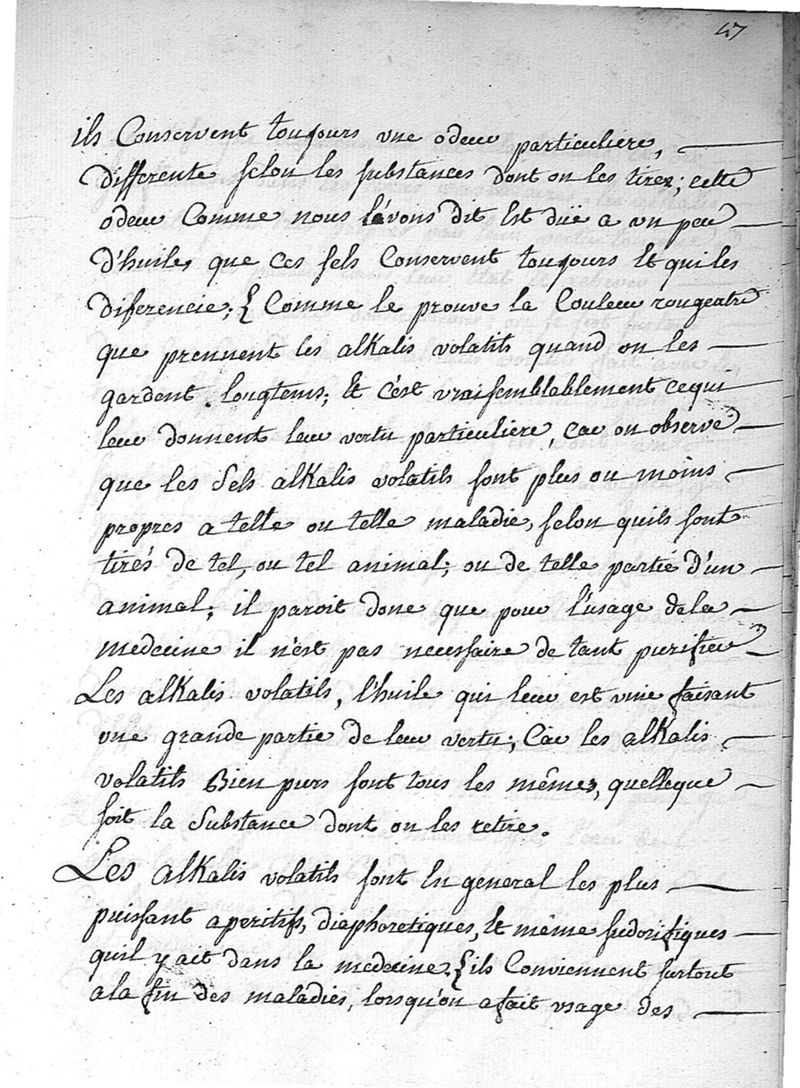 47
ils Conservent toujours une odeur particuliere,
differente selon les substances dont on les tirez; cette
odeur Comme nous l'avons dit Est duë a un peu
d'huile, que ces sels Conservent toujours Et qui les
diferencie; { Comme le prouve la Couleur rougeatre
que prennent les alKalis volatils quand on les
gardent longtems; Et c'est vraisemblablement ce qui
leur donnent leur vertu particuliere, car on observe
que les Sels alKalis volatils sont plus ou moins
propres a telle ou telle maladie, selon quils sont
tirés de tel, ou tel animal; ou de telle partie d'un
animal; il paroit donc que pour l'usage dela
medecine il n'est pas necessaire de tant purifier
Les alKalis volatils, l'huile qui leur est unie faisant
une grande partie de leur vertu; Car les alKalis
volatils Bien purs sont tous les mêmes, quelleque
soit la Substance dont on les retire.
Les alKalis volatils sont En general les plus
puissant aperitifs, diaphoretiques, Et même sudorifiques
quil y ait dans la medecine. { ils Conviennent surtout
ala fin des maladies, lorsqu'on a fait usage des